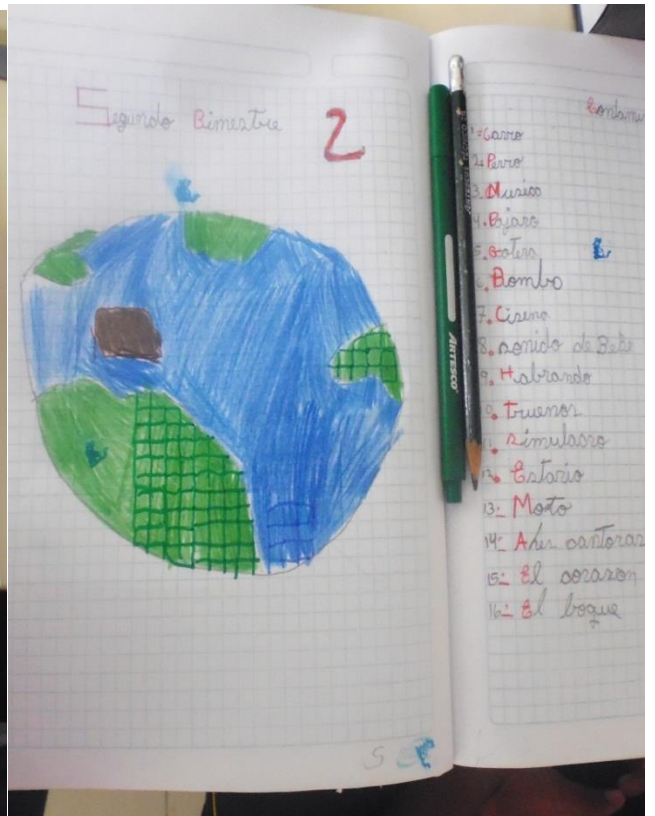 Segundo Bimestre
2
ARTESCO
Contami
1=Carro
2. Perro
3. Musica
4. Pajaro
5. Gotera
6. Bomba
7. Cirena
8. sonido de Bebe
9. Habrando
10. Truenos
11. Simulacro
12. Estario
13=Moto
14= Abes cantoras
15= El corazon
16= El boque
S